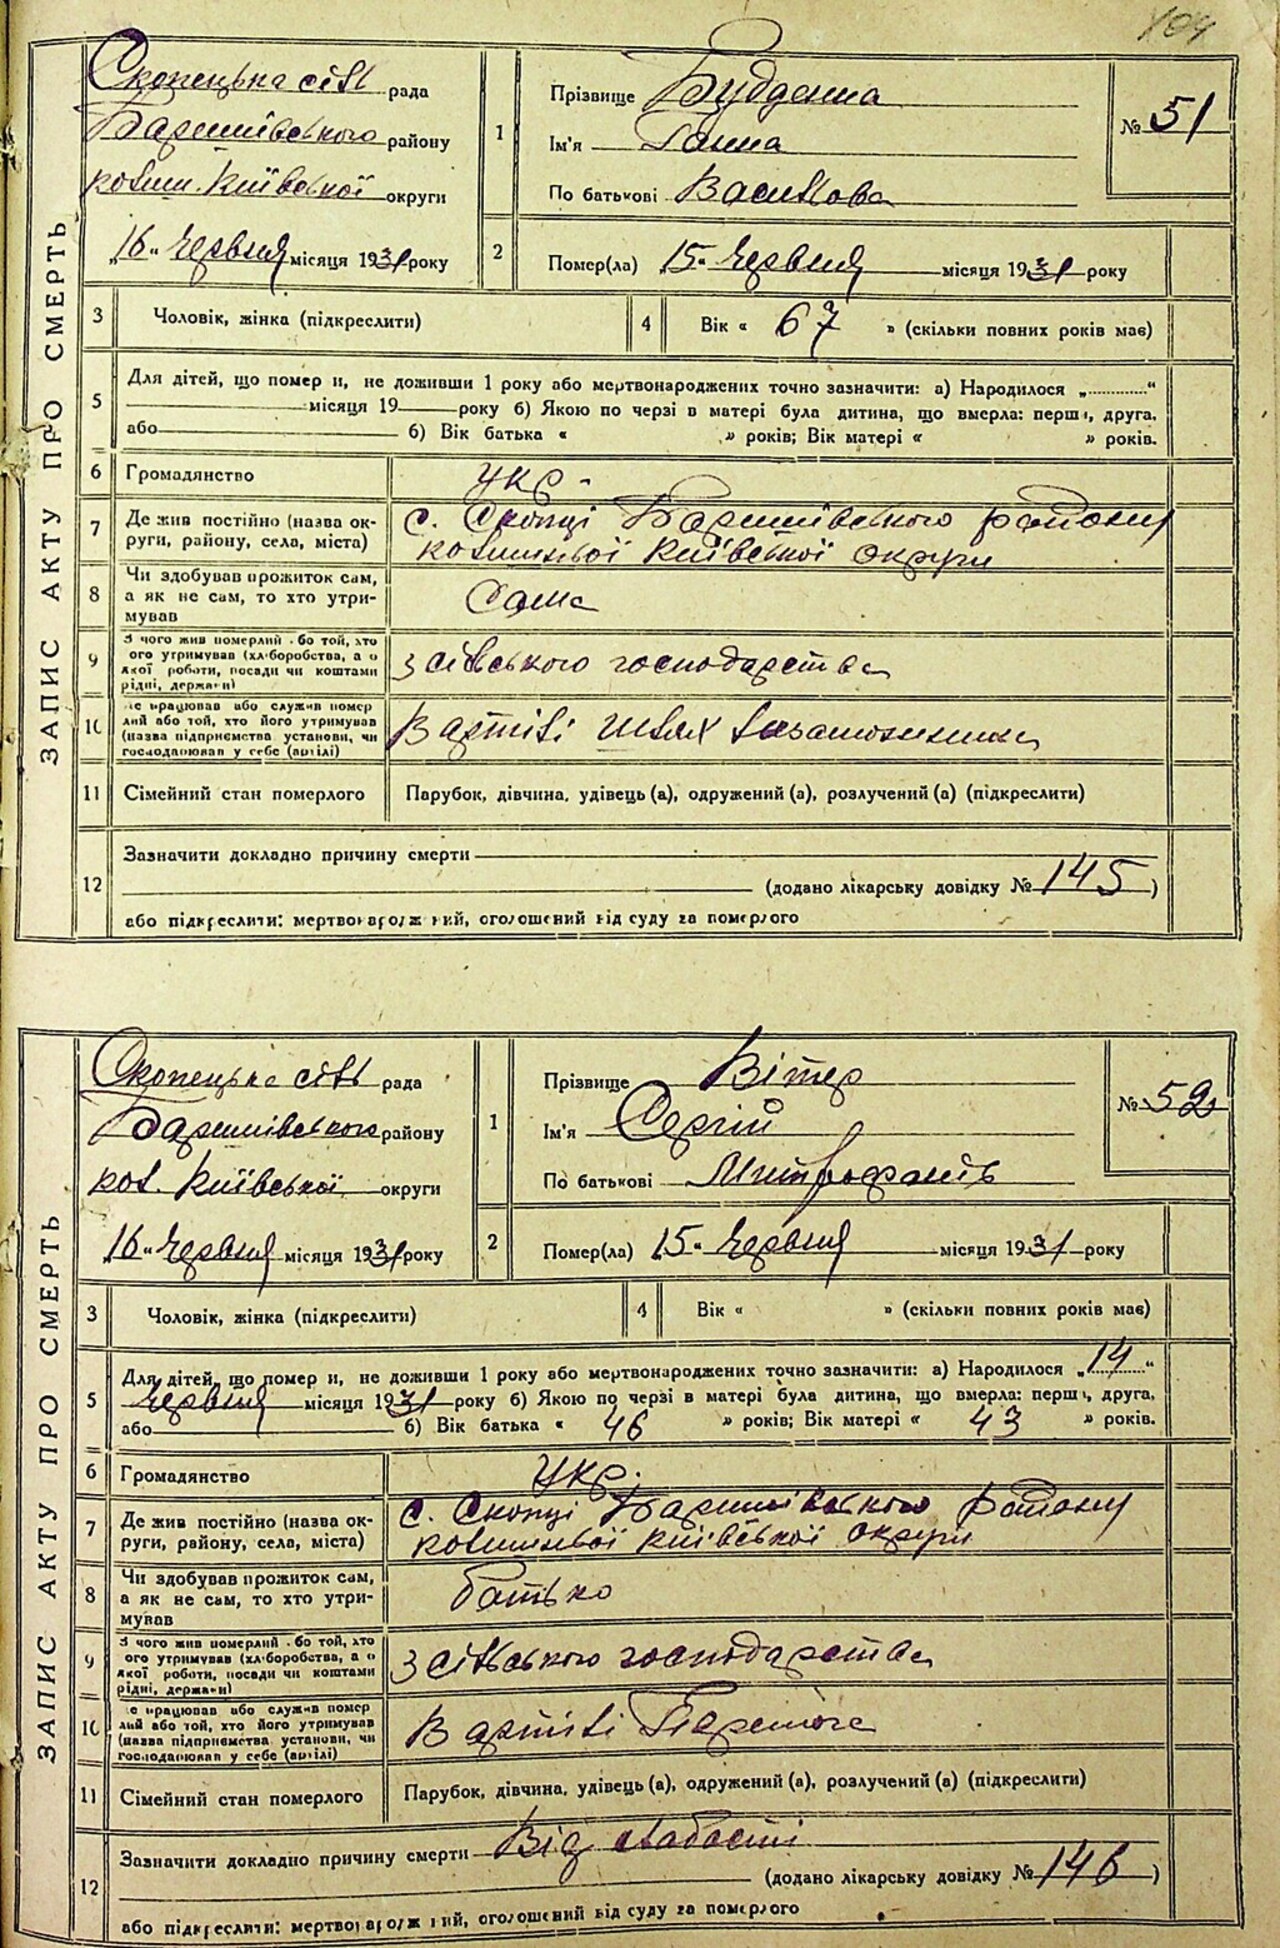 104
ЗАПИС АКТУ ПРО СМЕРТЬ
Скопецька сіль рада
Баришівського району
колиш. Київської округи
„16" червня місяця 1931 року
1
Прізвище Будденна
Ім'я Ганна
По батькові Василова
№ 51
2
Помер(ла) 15" червня місяця 1931 року
3 Чоловік, жінка (підкреслити)
4 Вік « 67 » (скільки повних років має)
5
Для дітей, що помер и, не доживши 1 року або мертвонароджених точно зазначити: а) Народилося „ "
місяця 19 року б) Якою по черзі в матері була дитина, що вмерла: перша, друга,
або б) Вік батька « » років; Вік матері « » років.
6 Громадянство укр.
7 Де жив постійно (назва округи, району, села, міста)
с. Скопці Баришівського району
колишньої Київської округи
8 Чи здобував прожиток сам,
а як не сам, то хто утримував
Сама
9 З чого жив померлий або той, хто
ого утримував (хліборобства, а о
якої роботи, посади чи коштами
рідні, держави)
з сільського господарства
10 е працював або служив помер
лий або той, хто його утримував
(назва підприємства установи, чи
господарював у себе (артілі)
В артілі шлях
11 Сімейний стан померлого
Парубок, дівчина, удівець (а), одружений (а), розлучений (а) (підкреслити)
12
Зазначити докладно причину смерти
(додано лікарську довідку № 145)
або підкреслити: мертвонароджений, оголошений від суду за померлого
ЗАПИС АКТУ ПРО СМЕРТЬ
Скопецька сіль рада
Баришівського району
кол. Київської округи
„16" червня місяця 1931 року
1
Прізвище Вітер
Ім'я Сергій
По батькові Митрофанів
№ 52
2
Помер(ла) 15" червня місяця 1931 року
3 Чоловік, жінка (підкреслити)
4 Вік « » (скільки повних років має)
5
Для дітей, що помер и, не доживши 1 року або мертвонароджених точно зазначити: а) Народилося „14"
червня місяця 1931 року б) Якою по черзі в матері була дитина, що вмерла: перша, друга,
або б) Вік батька « 46 » років; Вік матері « 43 » років.
6 Громадянство укр.
7 Де жив постійно (назва округи, району, села, міста)
с. Скопці Баришівського району
колишньої Київської округи
8 Чи здобував прожиток сам,
а як не сам, то хто утримував
батько
9 З чого жив померлий або той, хто
ого утримував (хліборобства, а о
якої роботи, посади чи коштами
рідні, держави)
з сільського господарства
10 е працював або служив помер
лий або той, хто його утримував
(назва підприємства установи, чи
господарював у себе (артілі)
В артілі Перемога
11 Сімейний стан померлого
Парубок, дівчина, удівець (а), одружений (а), розлучений (а) (підкреслити)
12
Зазначити докладно причину смерти Від слабості
(додано лікарську довідку № 146)
або підкреслити: мертвонароджений, оголошений від суду за померлого